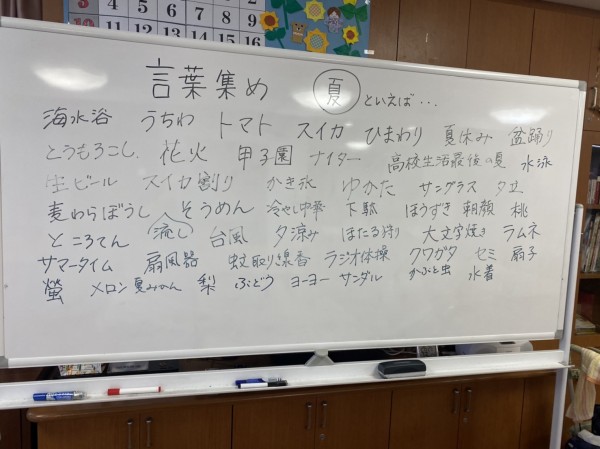 3 4 5
10 11 12
13 14 15 16
言葉集め 夏 といえば・・・
海水浴 うちわ トマト スイカ ひまわり 夏休み 盆踊り
とうもろこし 花火 甲子園 ナイター 高校生活最後の夏 水泳
生ビール スイカ割り かき氷 ゆかた サングラス 夕立
麦わらぼうし そうめん 冷やし中華 下駄 ほうずき 朝顔 桃
ところてん 流し 台風 夕涼み ほたる狩り 大文字焼き ラムネ
サマータイム 扇風器 蚊取り線香 ラジオ体操 クワガタ セミ 扇子
螢 メロン 夏みかん 梨 ぶどう ヨーヨー サンダル かぶと虫 水着